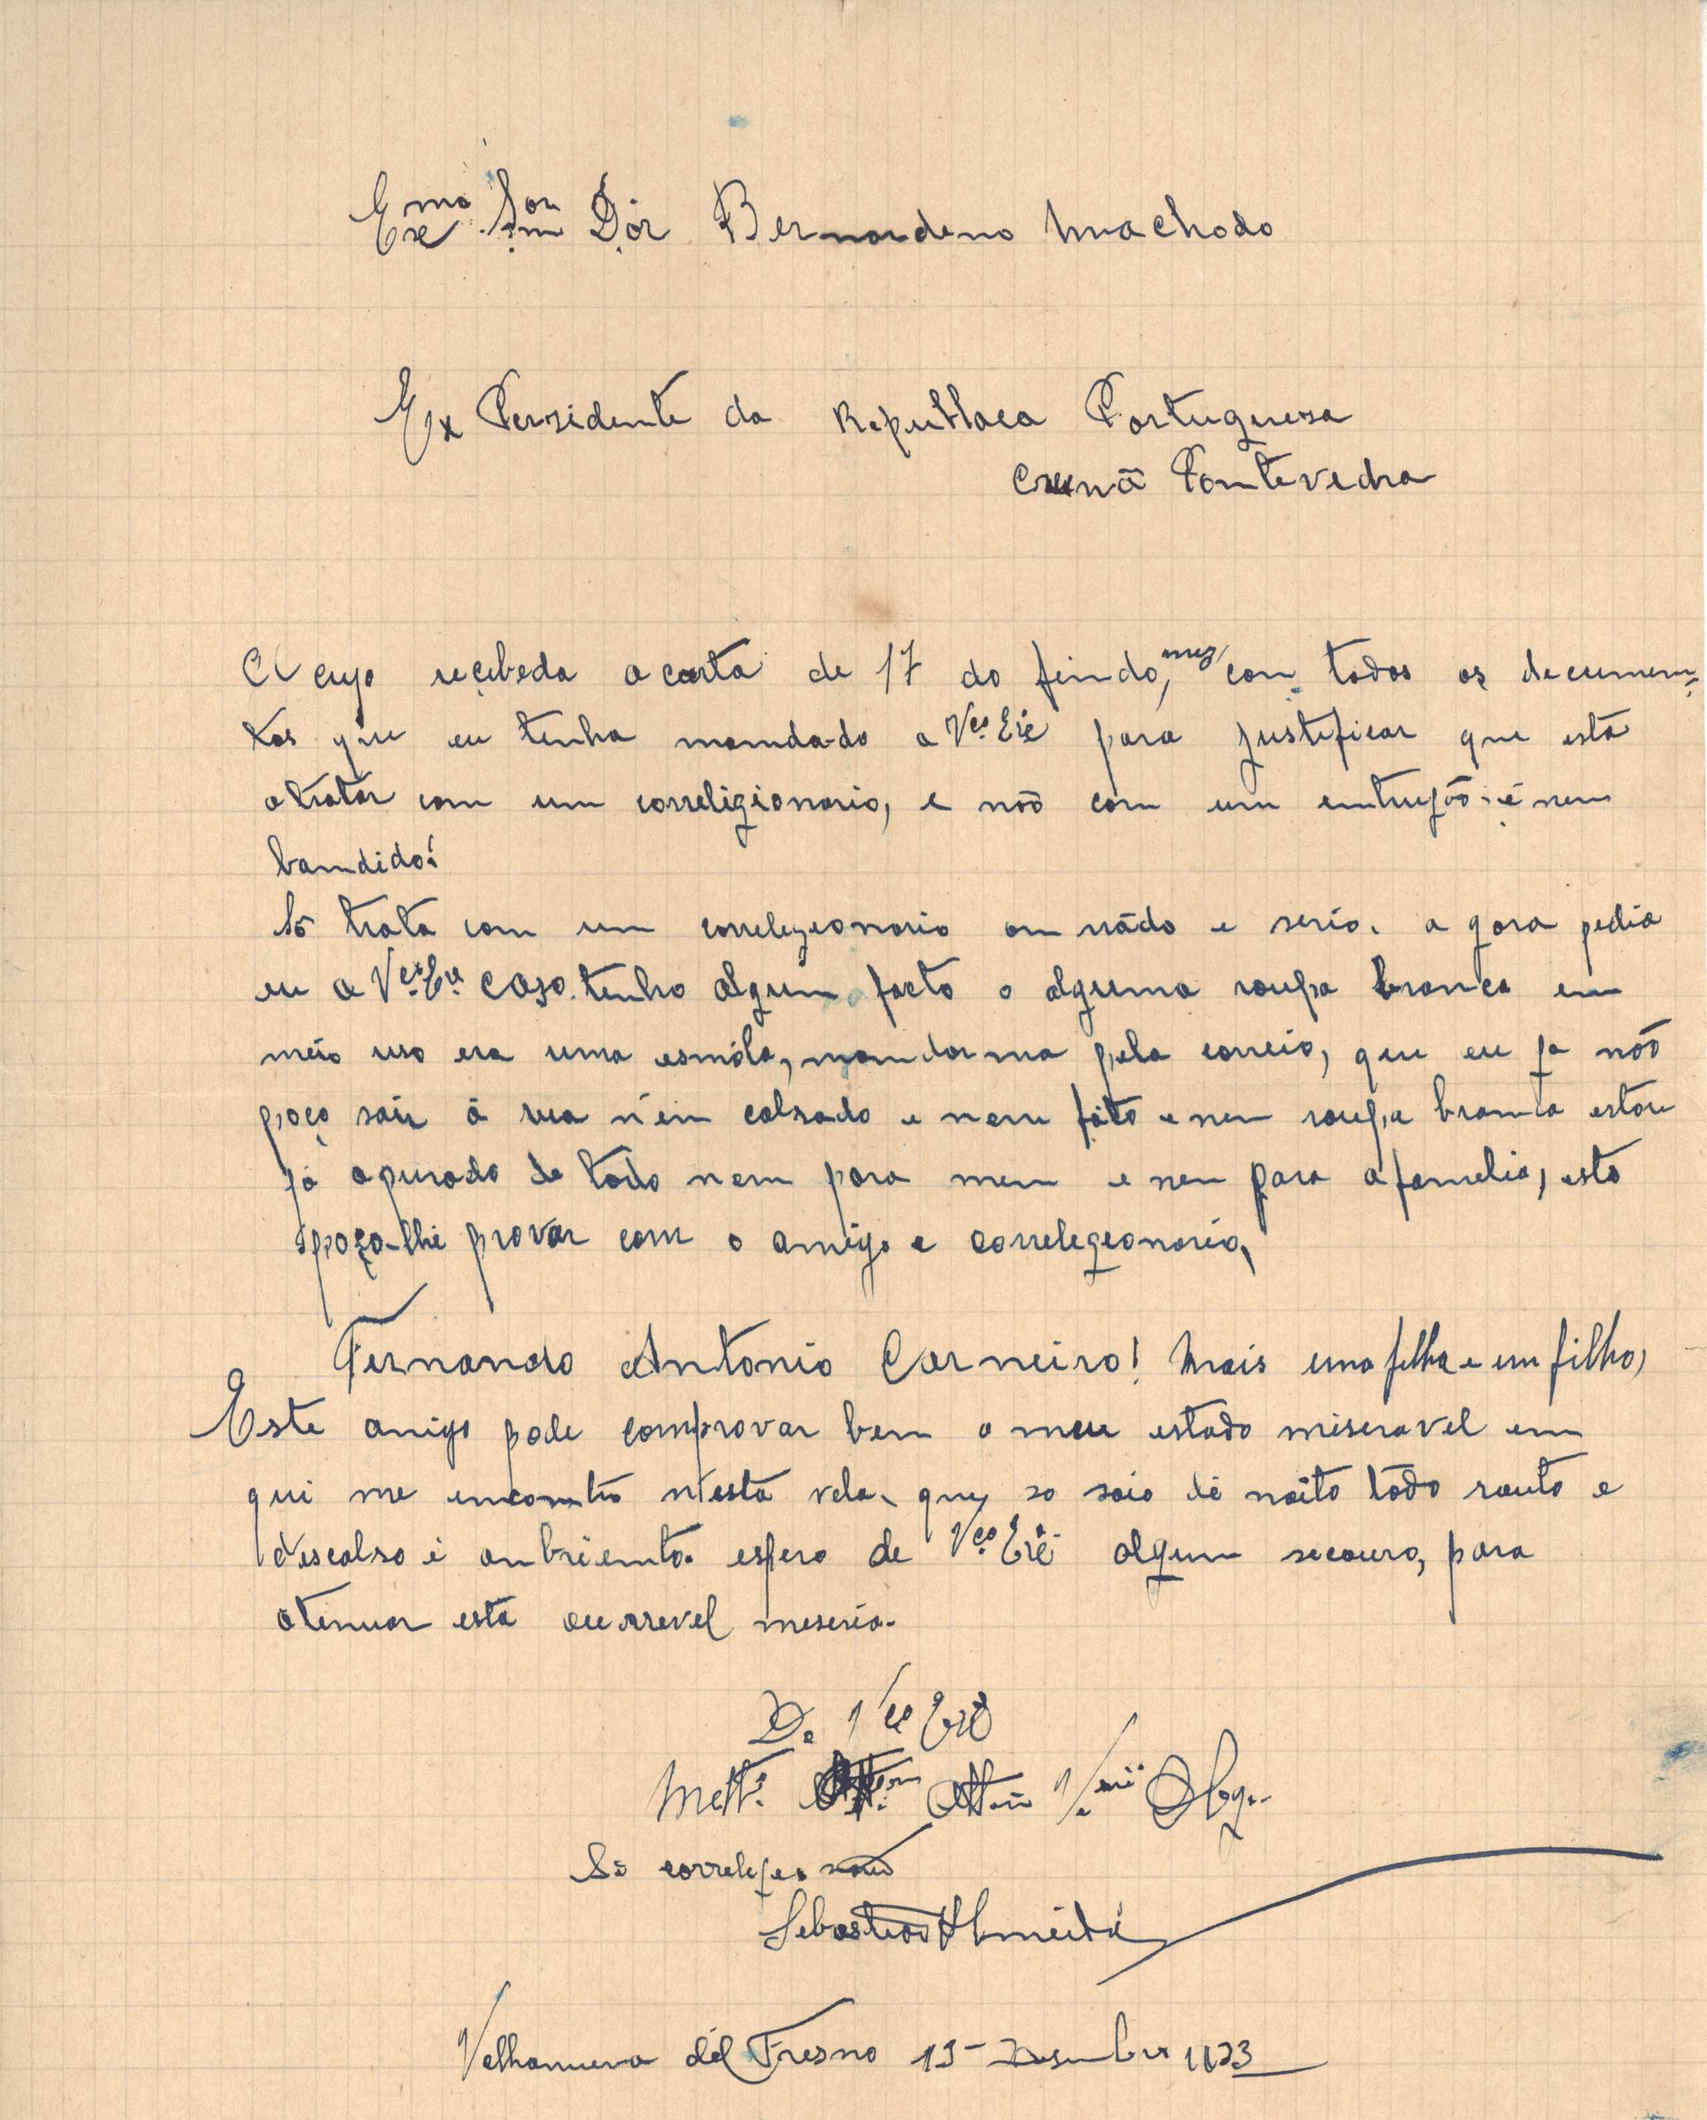 Exmo Snr Dor Bernardeno Machado
Ex Persidente da Republaca Portuguesa
Pontevedra
A cuja reçebeda a carta de 17 do findo, mez, com todos os decumem=
tos que eu tenha mamdado a Vca. Exe para justeficar que está
a tratar com um correligionario, e nõo com um entrujõo é nem
bamdido!
Só trata com um correlegeonario onrrádo e serio. a gora pedia
eu a Vca. Exa. caso tenha algum facto o alguma roupa branca em
meio uso era uma esmóla, mamdarma pela correio, que eu ja nõo
poço sair á rua n'em calsado e nem fato e nem roupa branca estou
já apurado de todo nem para mem e nem para a famelia, esto
poço-lhe provar com o amigo e correlegeonario,
Fernando Antonio Carneiro! Mais uma felha e um filho,
Este amigo pode comprovar bem o meu estado miseravel em
qui me emcomtro n'esta vela, que so saio dé noite todo routo e
descalso é ambriemto. espero de Vca. Exe algum secouro, para
atenuar esta ourrevel meseria.
De Vca Exa
Mtto. Atto. Obgo.
Só correlegeonario
Sebastiao Almeida
Velhanueva dél Fresno 13- Desembro 1933